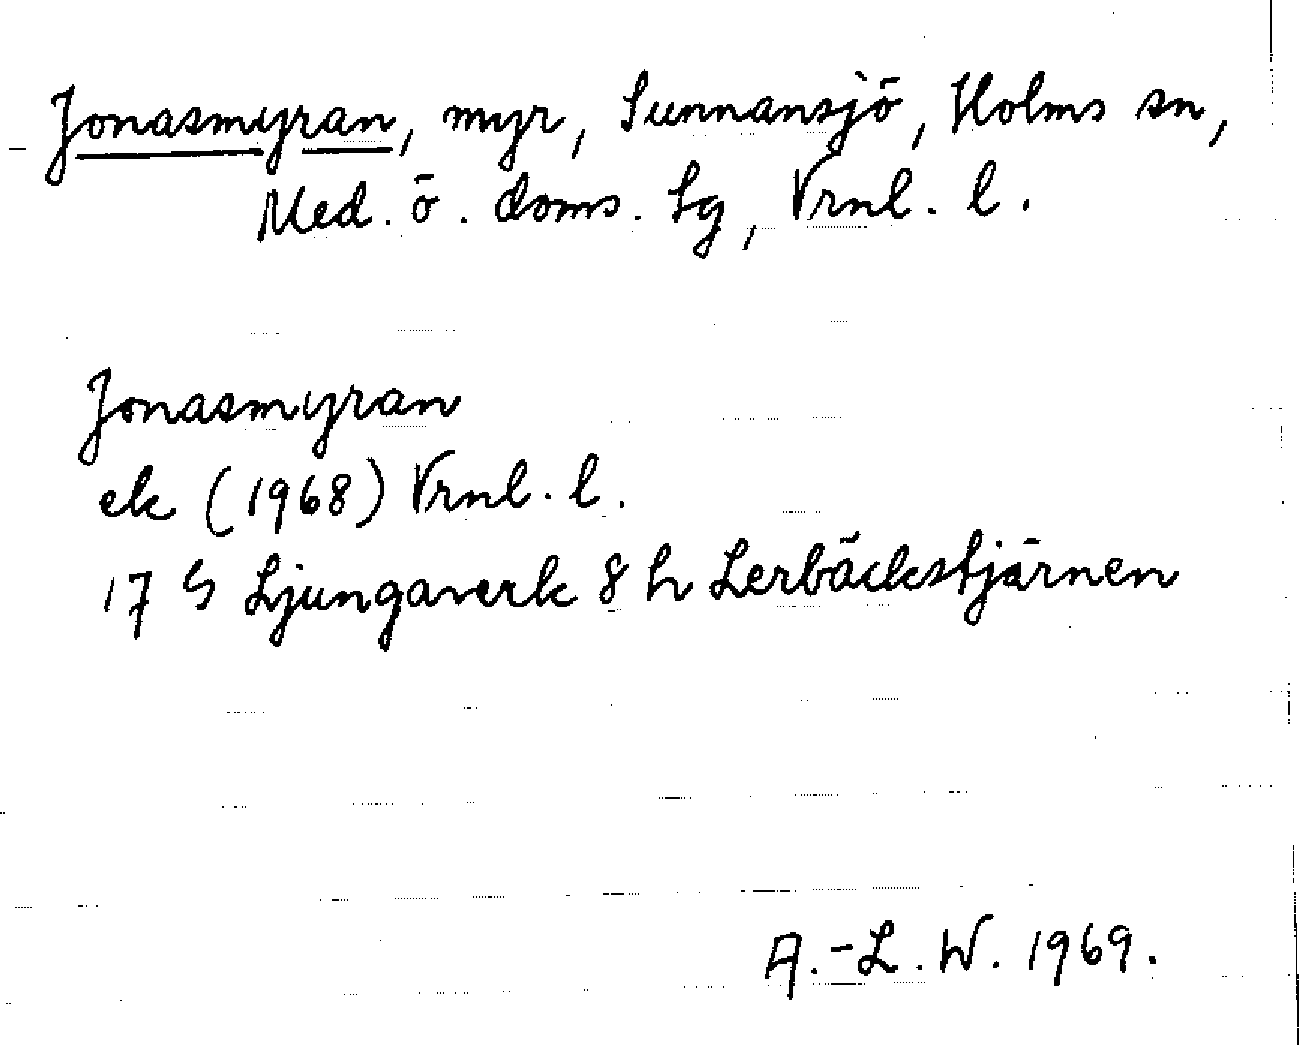 Jonasmyran, myr, Sunnansjö, Holms sn,
Med. ö. doms. lg, Vrnl. l.
Jonasmyran
ek (1968) Vrnl. l.
17 G Ljungaverk 8 h Lerbäckstjärnen
A.-L. W. 1969.